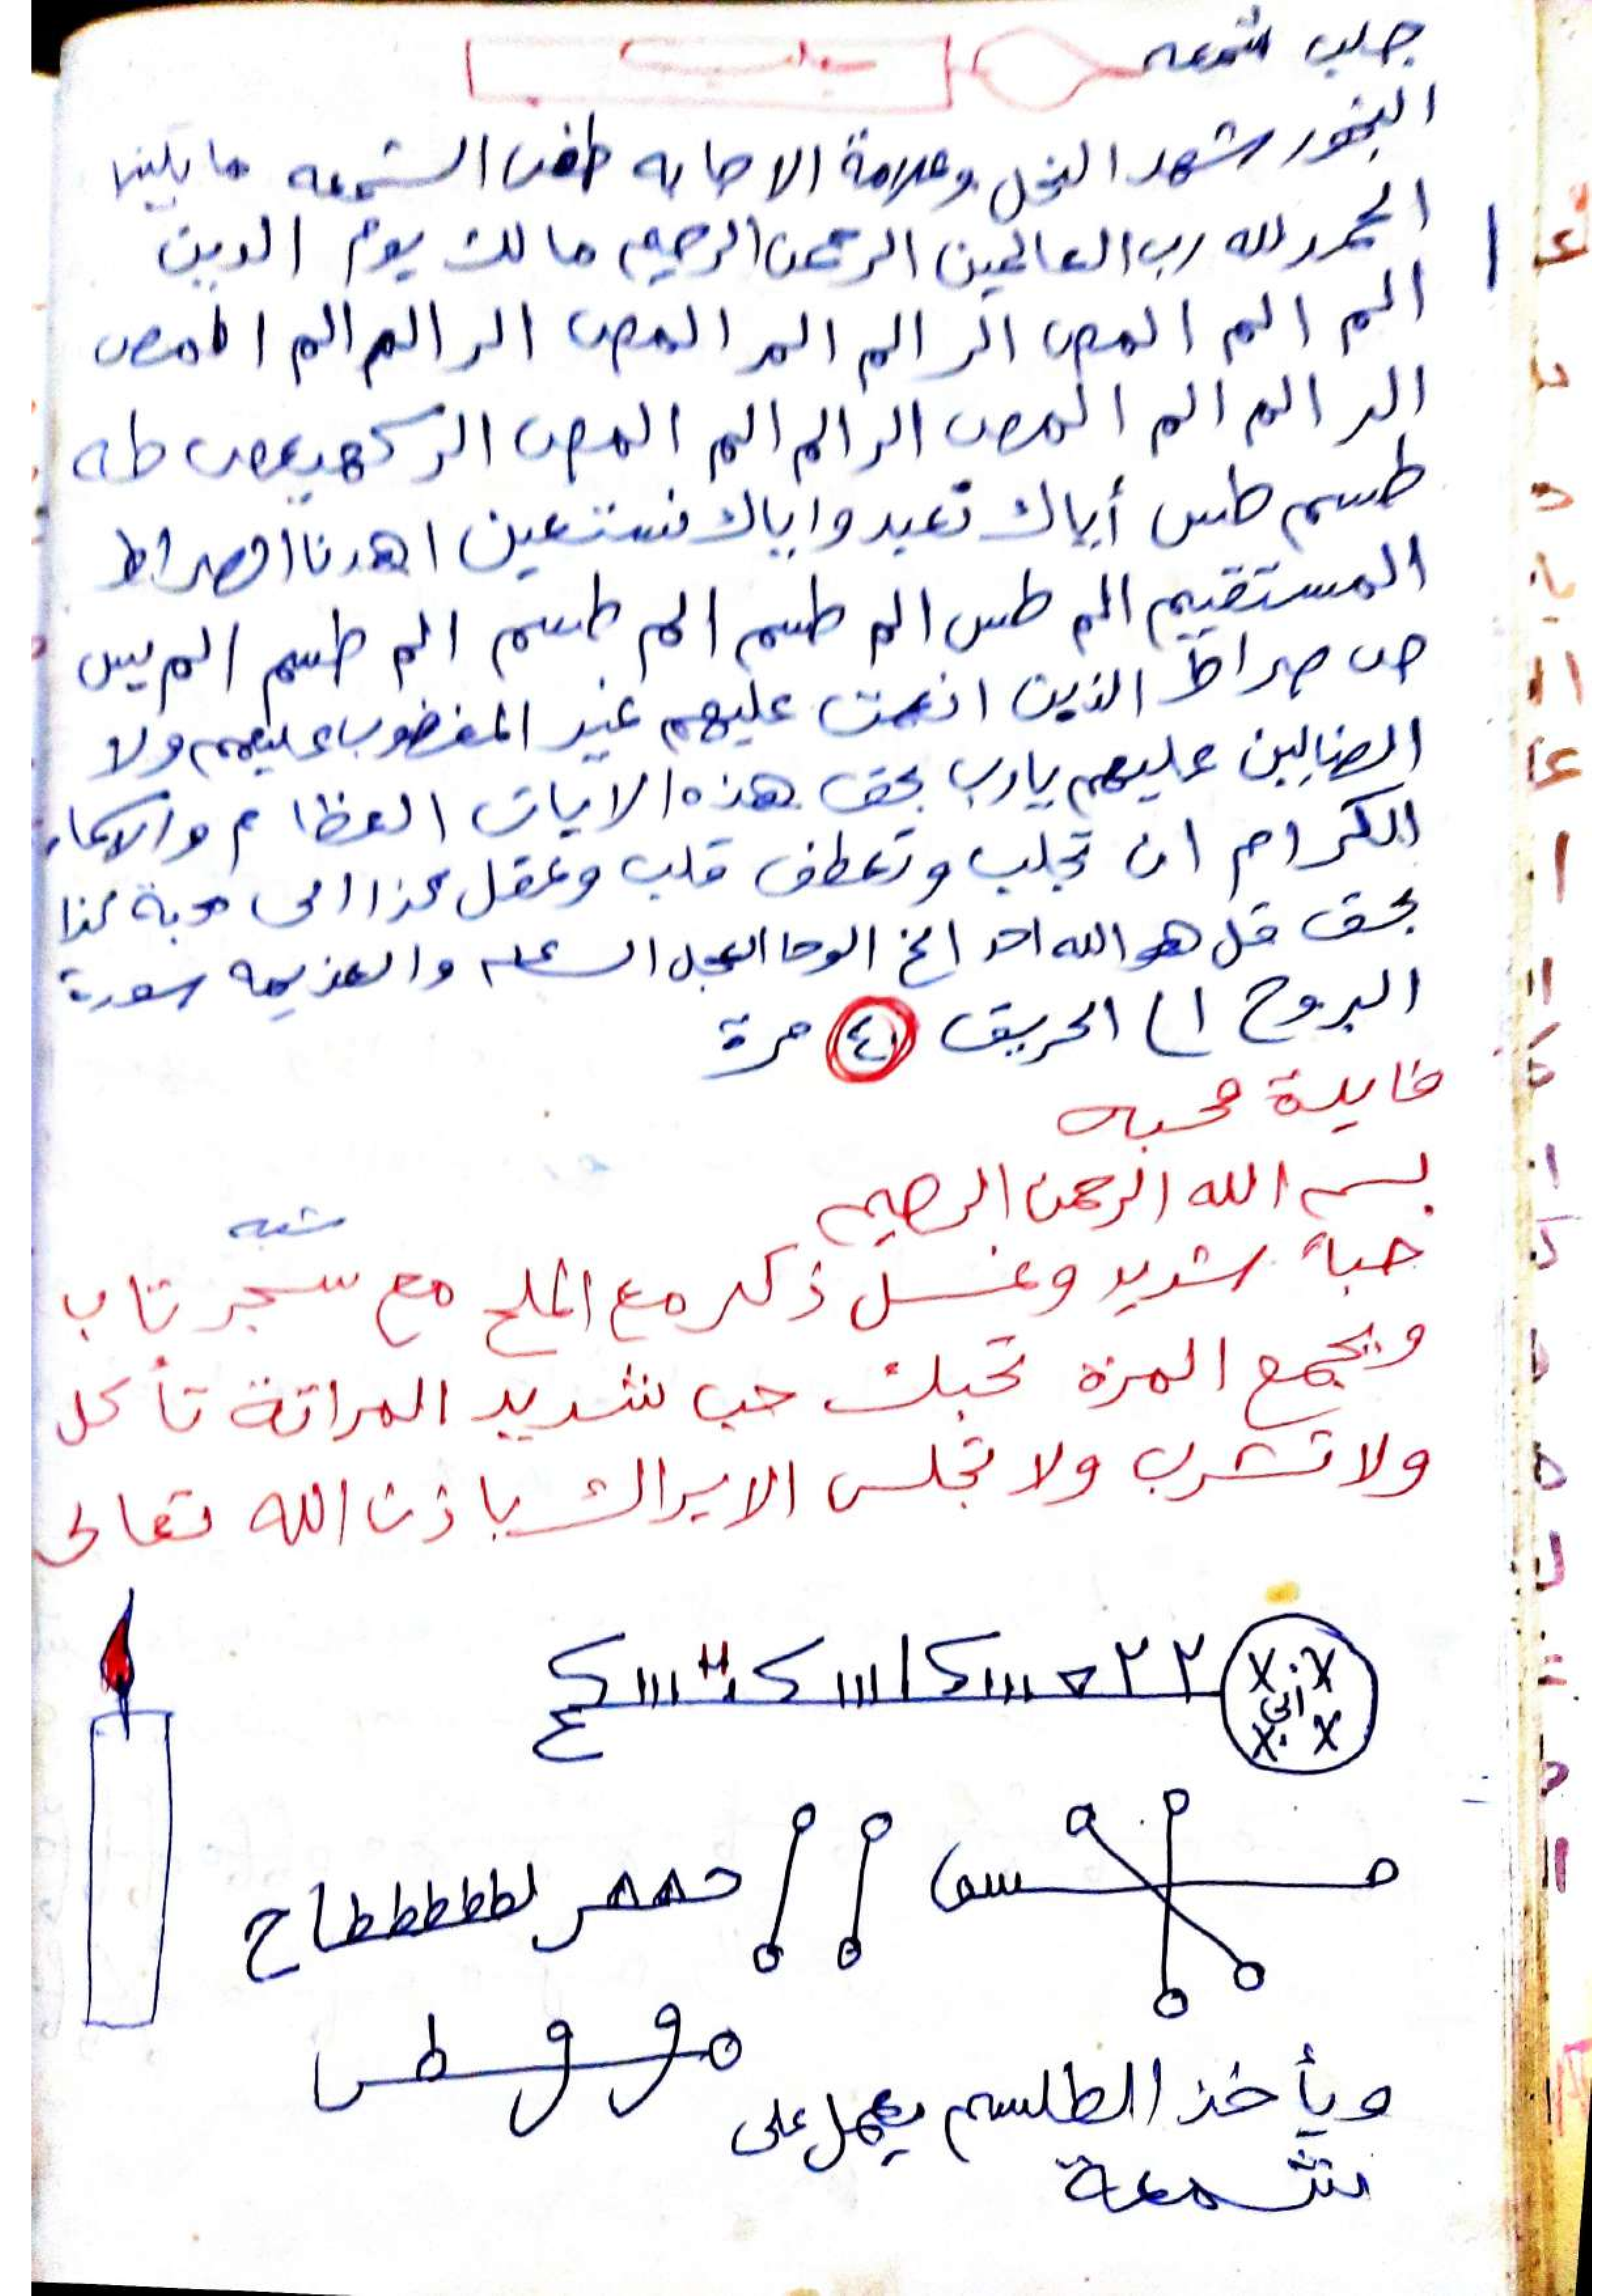 جلب شمعه جلب
البخور شهد النحل وعلامة الاصابه طفى الشمعه ما يلينا
الحمد لله رب العالمين الرحمن الرحيم مالك يوم الدين
الم الم المص الر الم المر المص الر الم الم المص
الر الم الم المص الر الم الم المص الر كهيعص طه
طسم طس أياك نعبد واياك نستعين اهدنا الصراط
المستقيم الم طس الم طسم الم طسم الم طسم الم يس
ص صراط الذين انعمت عليهم غير المغضوب عليهم ولا
الضالين عليهم يارب بحق هذه الايات العظام والاسماء
الكرام ان تجلب وتعطف قلب وعقل كذا الى محبة كذا
بحق قل هو الله احد الخ الوحا العجل الساعه والعزيمه سورة
البروج الى الحريق مرة
فايدة محبه
بسم الله الرحمن الرحيم
شبه
حباً شديد وغسل ذكر مع الملح مع سجر تاب
ويجمع المرة تحبك حب شديد المراتة تأكل
ولا تشرب ولا تجلس الا يراك باذن الله تعالى
ويأخذ الطلسم يعمل على
شمعة